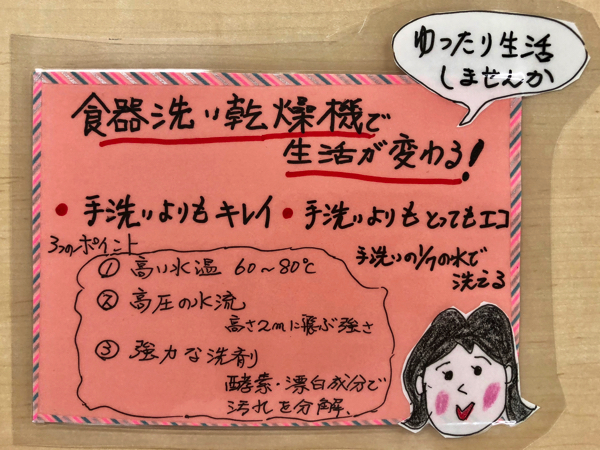 ゆったり生活
しませんか
食器洗い乾燥機で
生活が変わる!
• 手洗いよりもキレイ • 手洗いよりもとってもエコ
3つのポイント
手洗いの1/7の水で
洗える
① 高い水温 60~80℃
② 高圧の水流
高さ2mに飛ぶ強さ
③ 強力な洗剤
酵素・漂白成分で
汚れを分解、